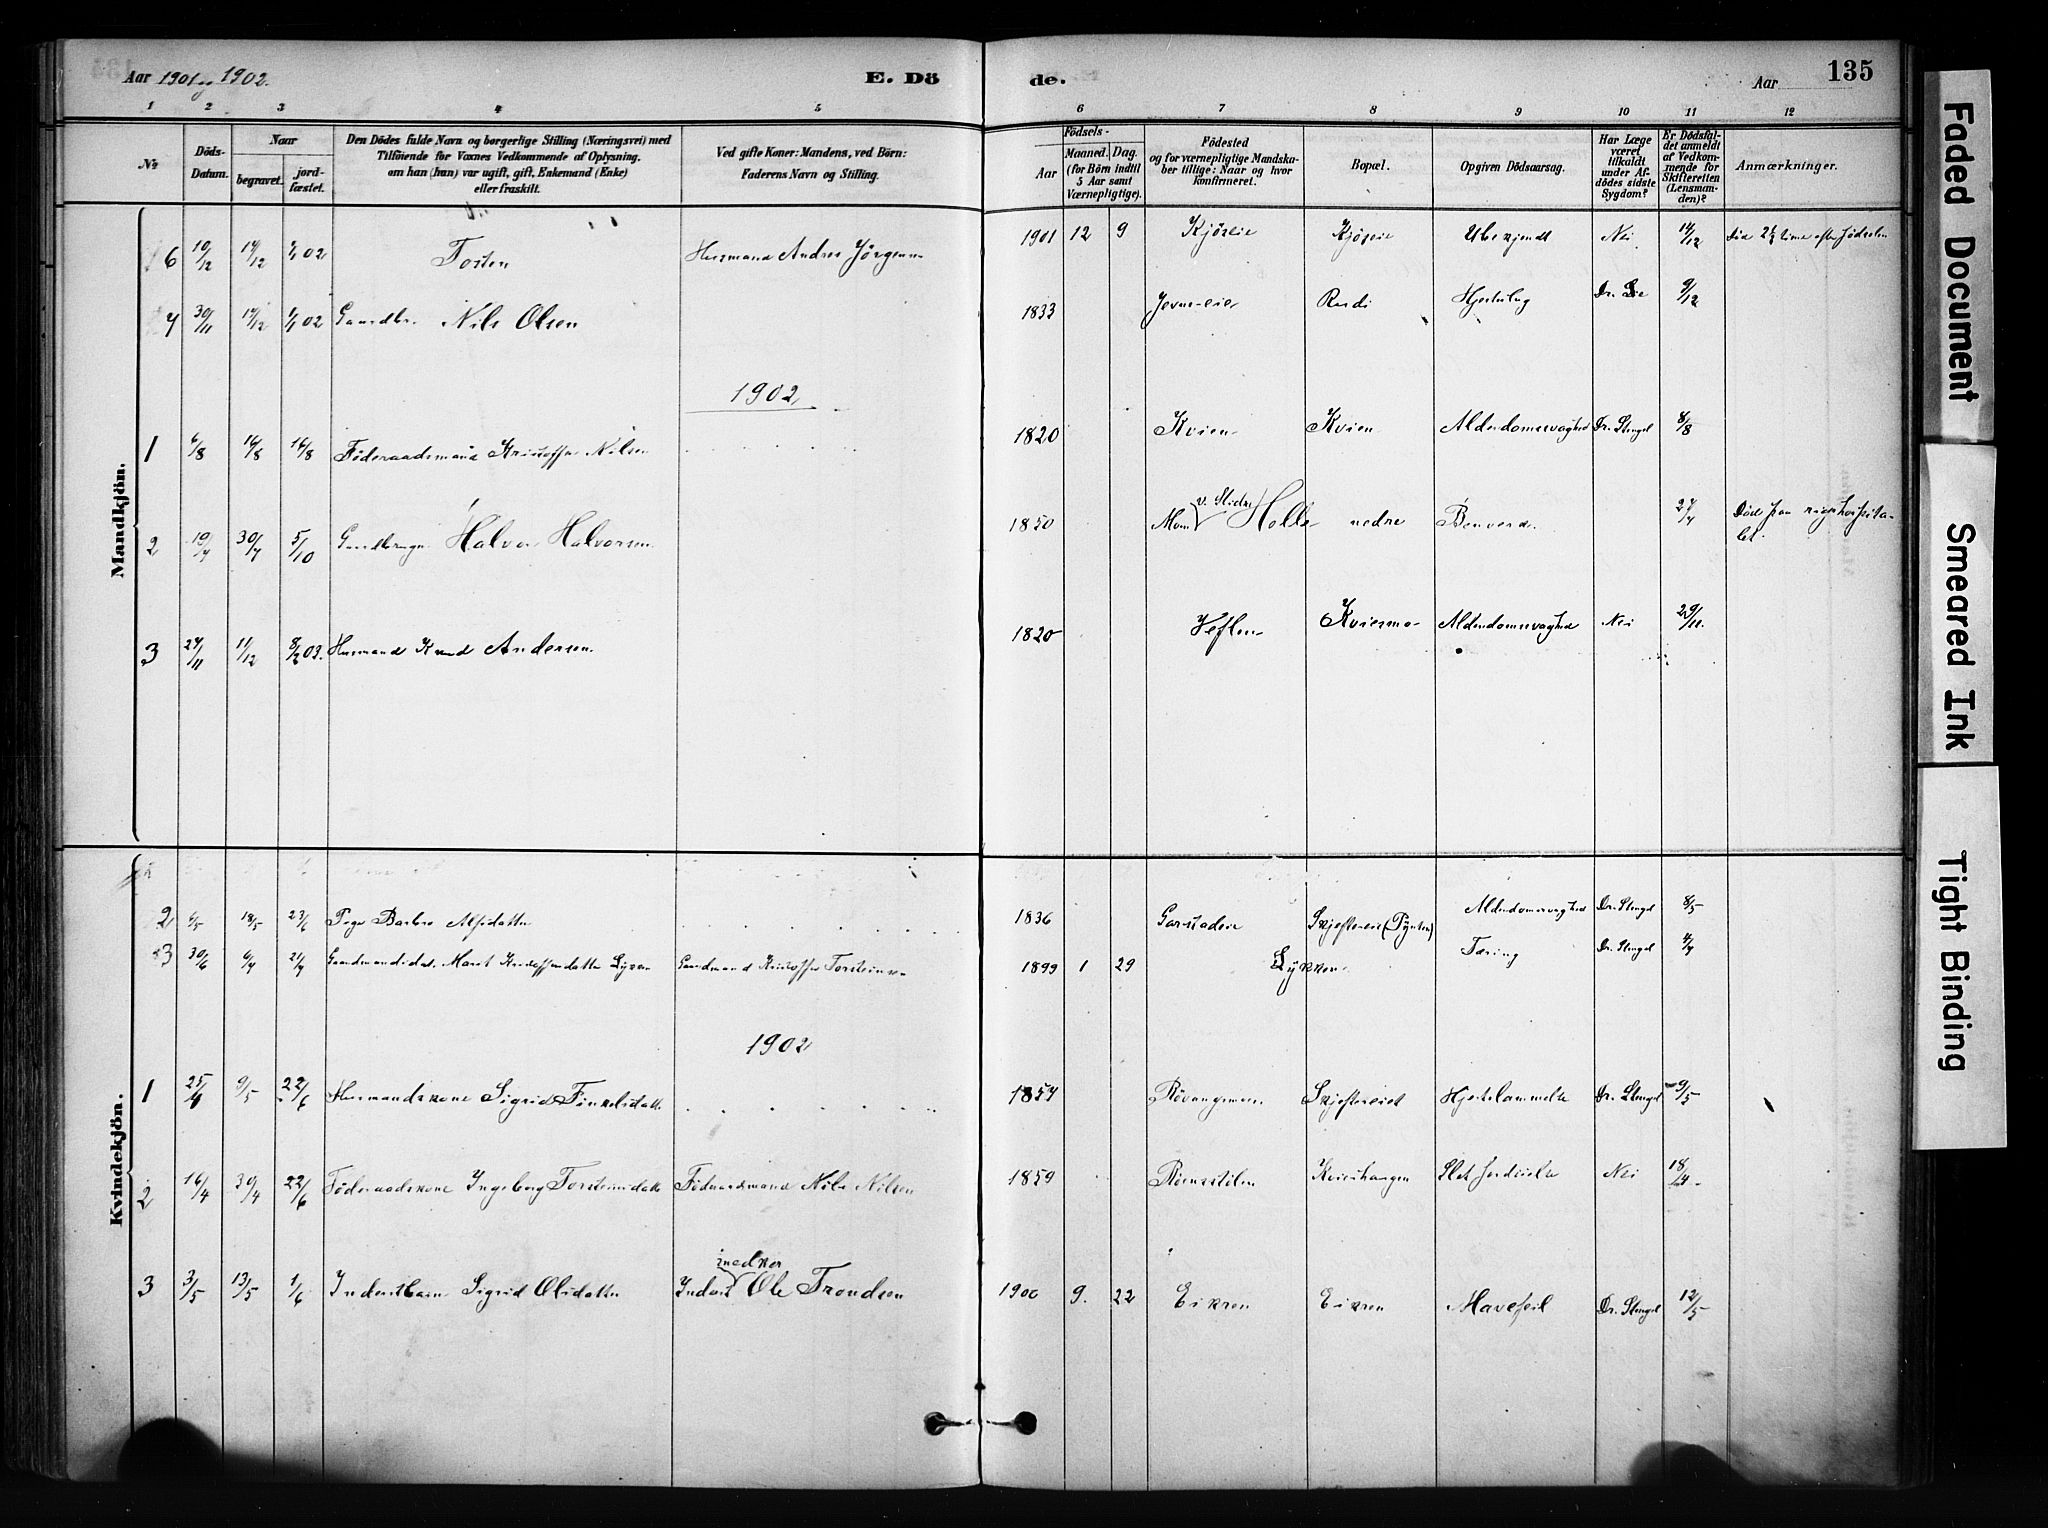 Aar 1901 og 1902.
E. Dö
de.
Aar
135
1 2 3 4 5
6 7 8 9 10 11 12
№
Döds-Datum.
Naar
begravet.
jord-fæstet.
Den Dödes fulde Navn og borgerlige Stilling (Næringsvei) med
Tilföiende for Voxnes Vedkommende af Oplysning,
om han (hun) var ugift, gift, Enkemand (Enke)
eller fraskilt.
Ved gifte Koner: Mandens, ved Börn:
Faderens Navn og Stilling.
Födsels-
Aar
Maaned. Dag.
(for Börn indtil
5 Aar samt
Værnepligtige).
Födested
og for værnepligtige Mandska-
ber tillige: Naar og hvor
konfirmeret.
Bopæl.
Opgiven Dödsaarsag.
Har Læge
været
tilkaldt
under Af-
dödes sidste
Sygdom?
Er Dödsfal-
det anmeldt
af Vedkom-
mende for
Skifteretten
(Lensman-
den)?
Anmærkninger.
Mandkjön.
6 10/12 14/12 Tosten Husmand Andres Jörgensen 1901 12 9 Kjöseie Kjöseie Ubekjendt Nei 14/12 Död 2½ time efter Födselen
7 30/11 14/12 1/1 02 Gaardbr. Nils Olsen 1833 Rudi Dr. Lie 9/12
1902.
1 6/8 16/8 16/8 Föderaadsmand Kristoffer Nilsen 1820 Kvien Kvien Alderdomssvaghed Dr. Stengel 8/8
2 19/7 30/7 5/10 Gaardbruger Halvor Halvorsen 1850 v. Slidre Hölle nedre 27/7 Död paa rigshospita-
let.
3 27/11 11/12 8/2 03. Husmand Knud Andersen 1820 Veflen Kviesmo Alderdomssvaghed Nei 29/11
Kvindekjön.
2 6/5 18/5 23/6 Barbro Alfsdatter 1836 Garstadeie Skjeftereie (Pynten) Alderdomssvaghed Dr. Stengel 8/5
3 30/6 6/7 21/7 Marit Kristoffersdatter Gaardmand Kristoffer Torsteinsen 1899 1 29 Lykken Tæring Dr. Stengel 4/7
1902
1 25/4 9/5 22/6 Husmandskone Sigrid 1857 Skjeftereiet Dr. Stengel 9/5
2 16/4 30/4 22/6 Föderaadskone Ingeborg Torsteinsdatter Föderaadsmand Nils Nilsen 1859 Kviehaugen Nei 18/4
3 3/5 13/5 1/6 Inderstbarn Sigrid Olsdatter Inderst Ole Trondsen 1900 9. 22 Eikren Eikren Mavefeil Dr. Stengel 12/5
Faded Document
Smeared Ink
Tight Binding